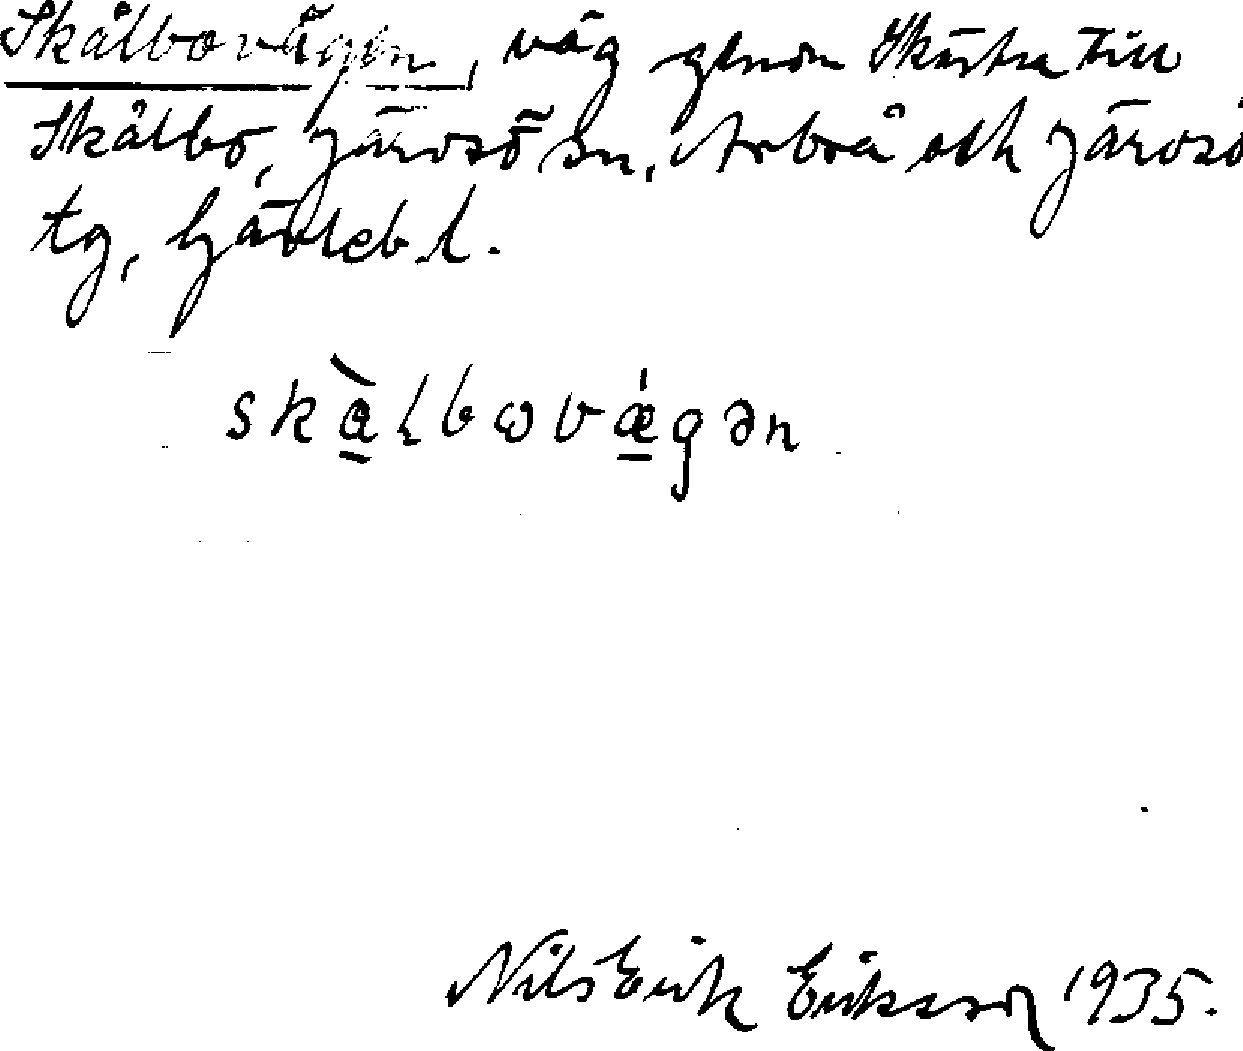 Skålbovägen, väg genom Skästra till
Skålbo, Järvsö sn, Arbrå och Järvsö
tg, Gävleb.l.
skàlbωvǽgən
Nils Erik Eriksson 1935.